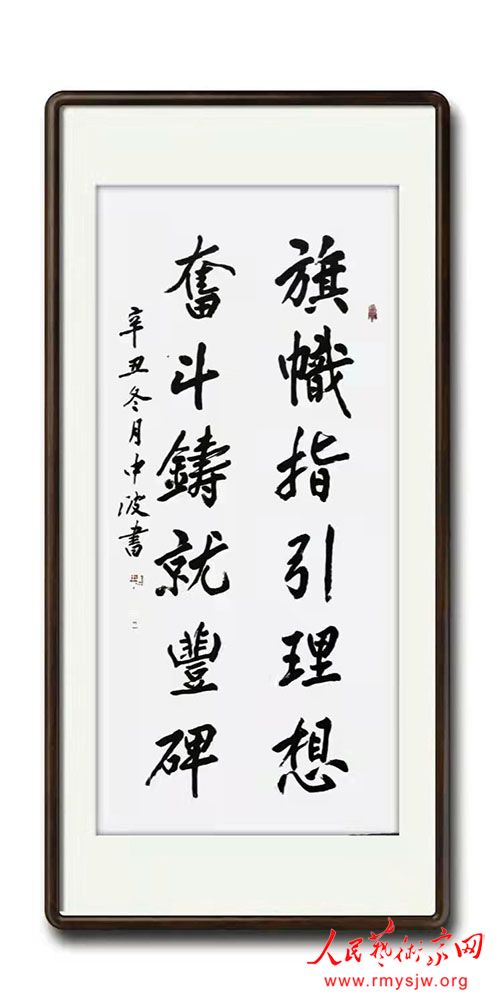 旗幟指引理想
奮斗鑄就豐碑
辛丑冬月中波書
人民藝術家网
www.rmysjw.org